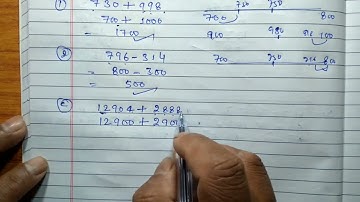 ① 730 + 998
700 730 750 800
700 + 1000
= 1700
900 950 1000
② 796 - 314
= 800 - 300
700 750 800
= 500
③ 12904 + 2888
12900 + 290